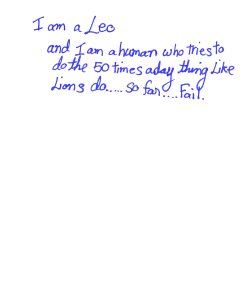 I am a Leo
and I am a human who tries to
do the 50 times a day thing Like
Lions do..... so far.... Fail.